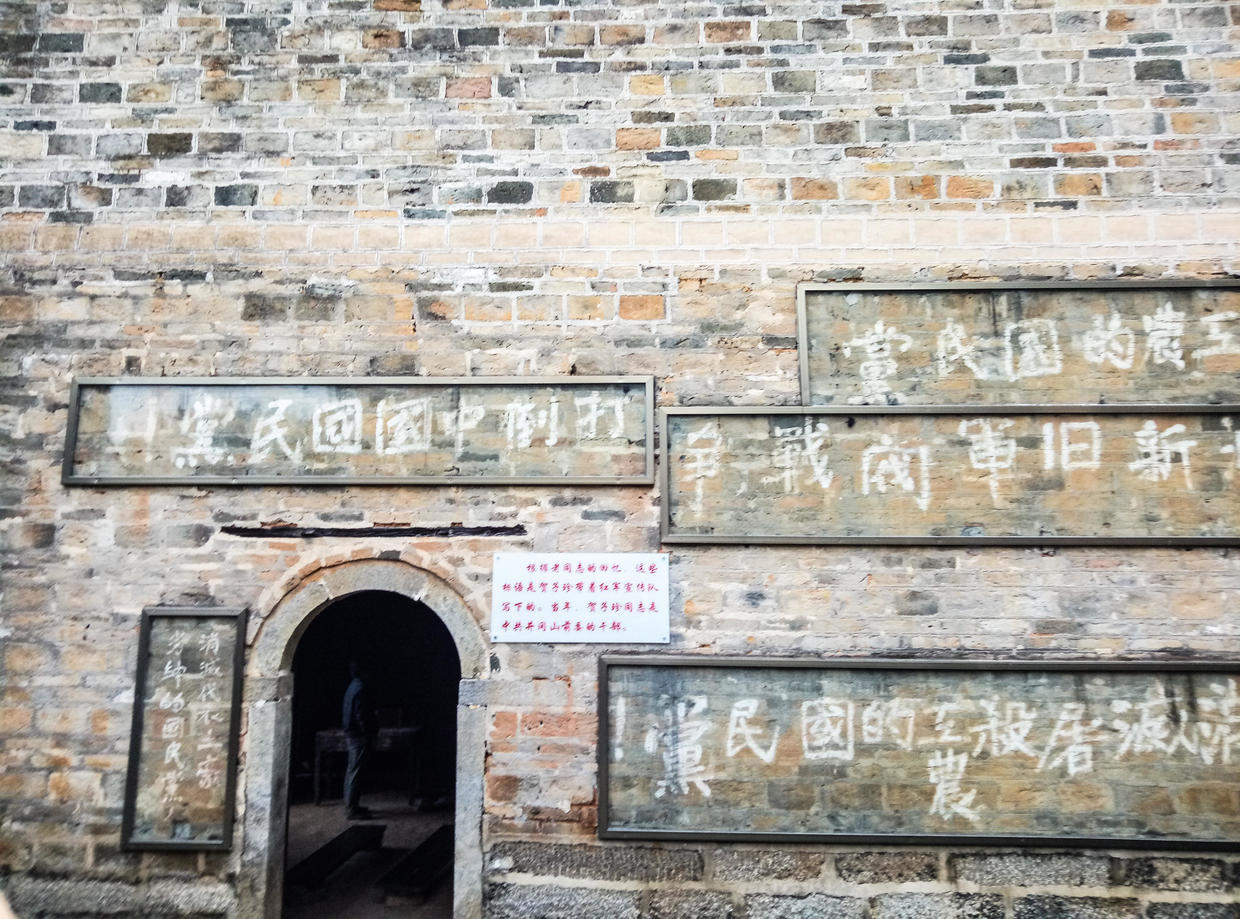 工農的國民黨
打倒中國國民黨！
新旧軍閥戰爭
根据老同志的回忆，这些
标语是贺子珍带着红军宣传队
写下的。当年，贺子珍同志是
中共井冈山前委的干部。
消滅代表土豪
劣紳的國民黨
屠殺工農的國民黨！